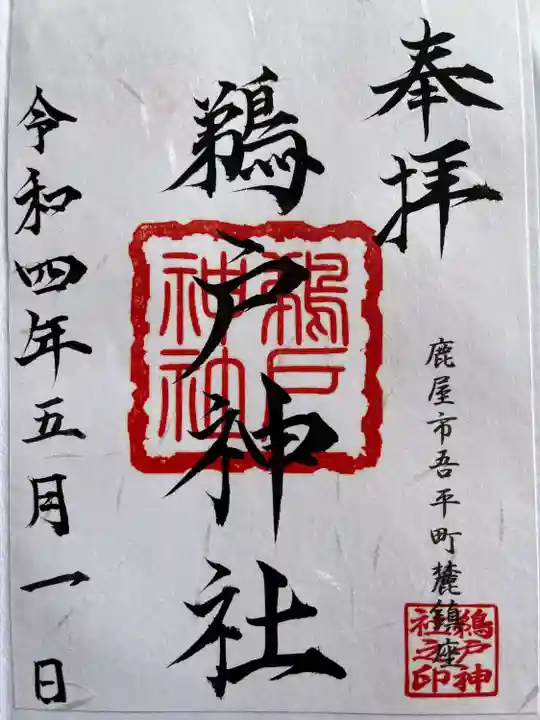 奉拝
鹿屋市吾平町麓鎮座
鵜戸神社之印
鵜戸神社
鵜戸神社
令和四年五月一日